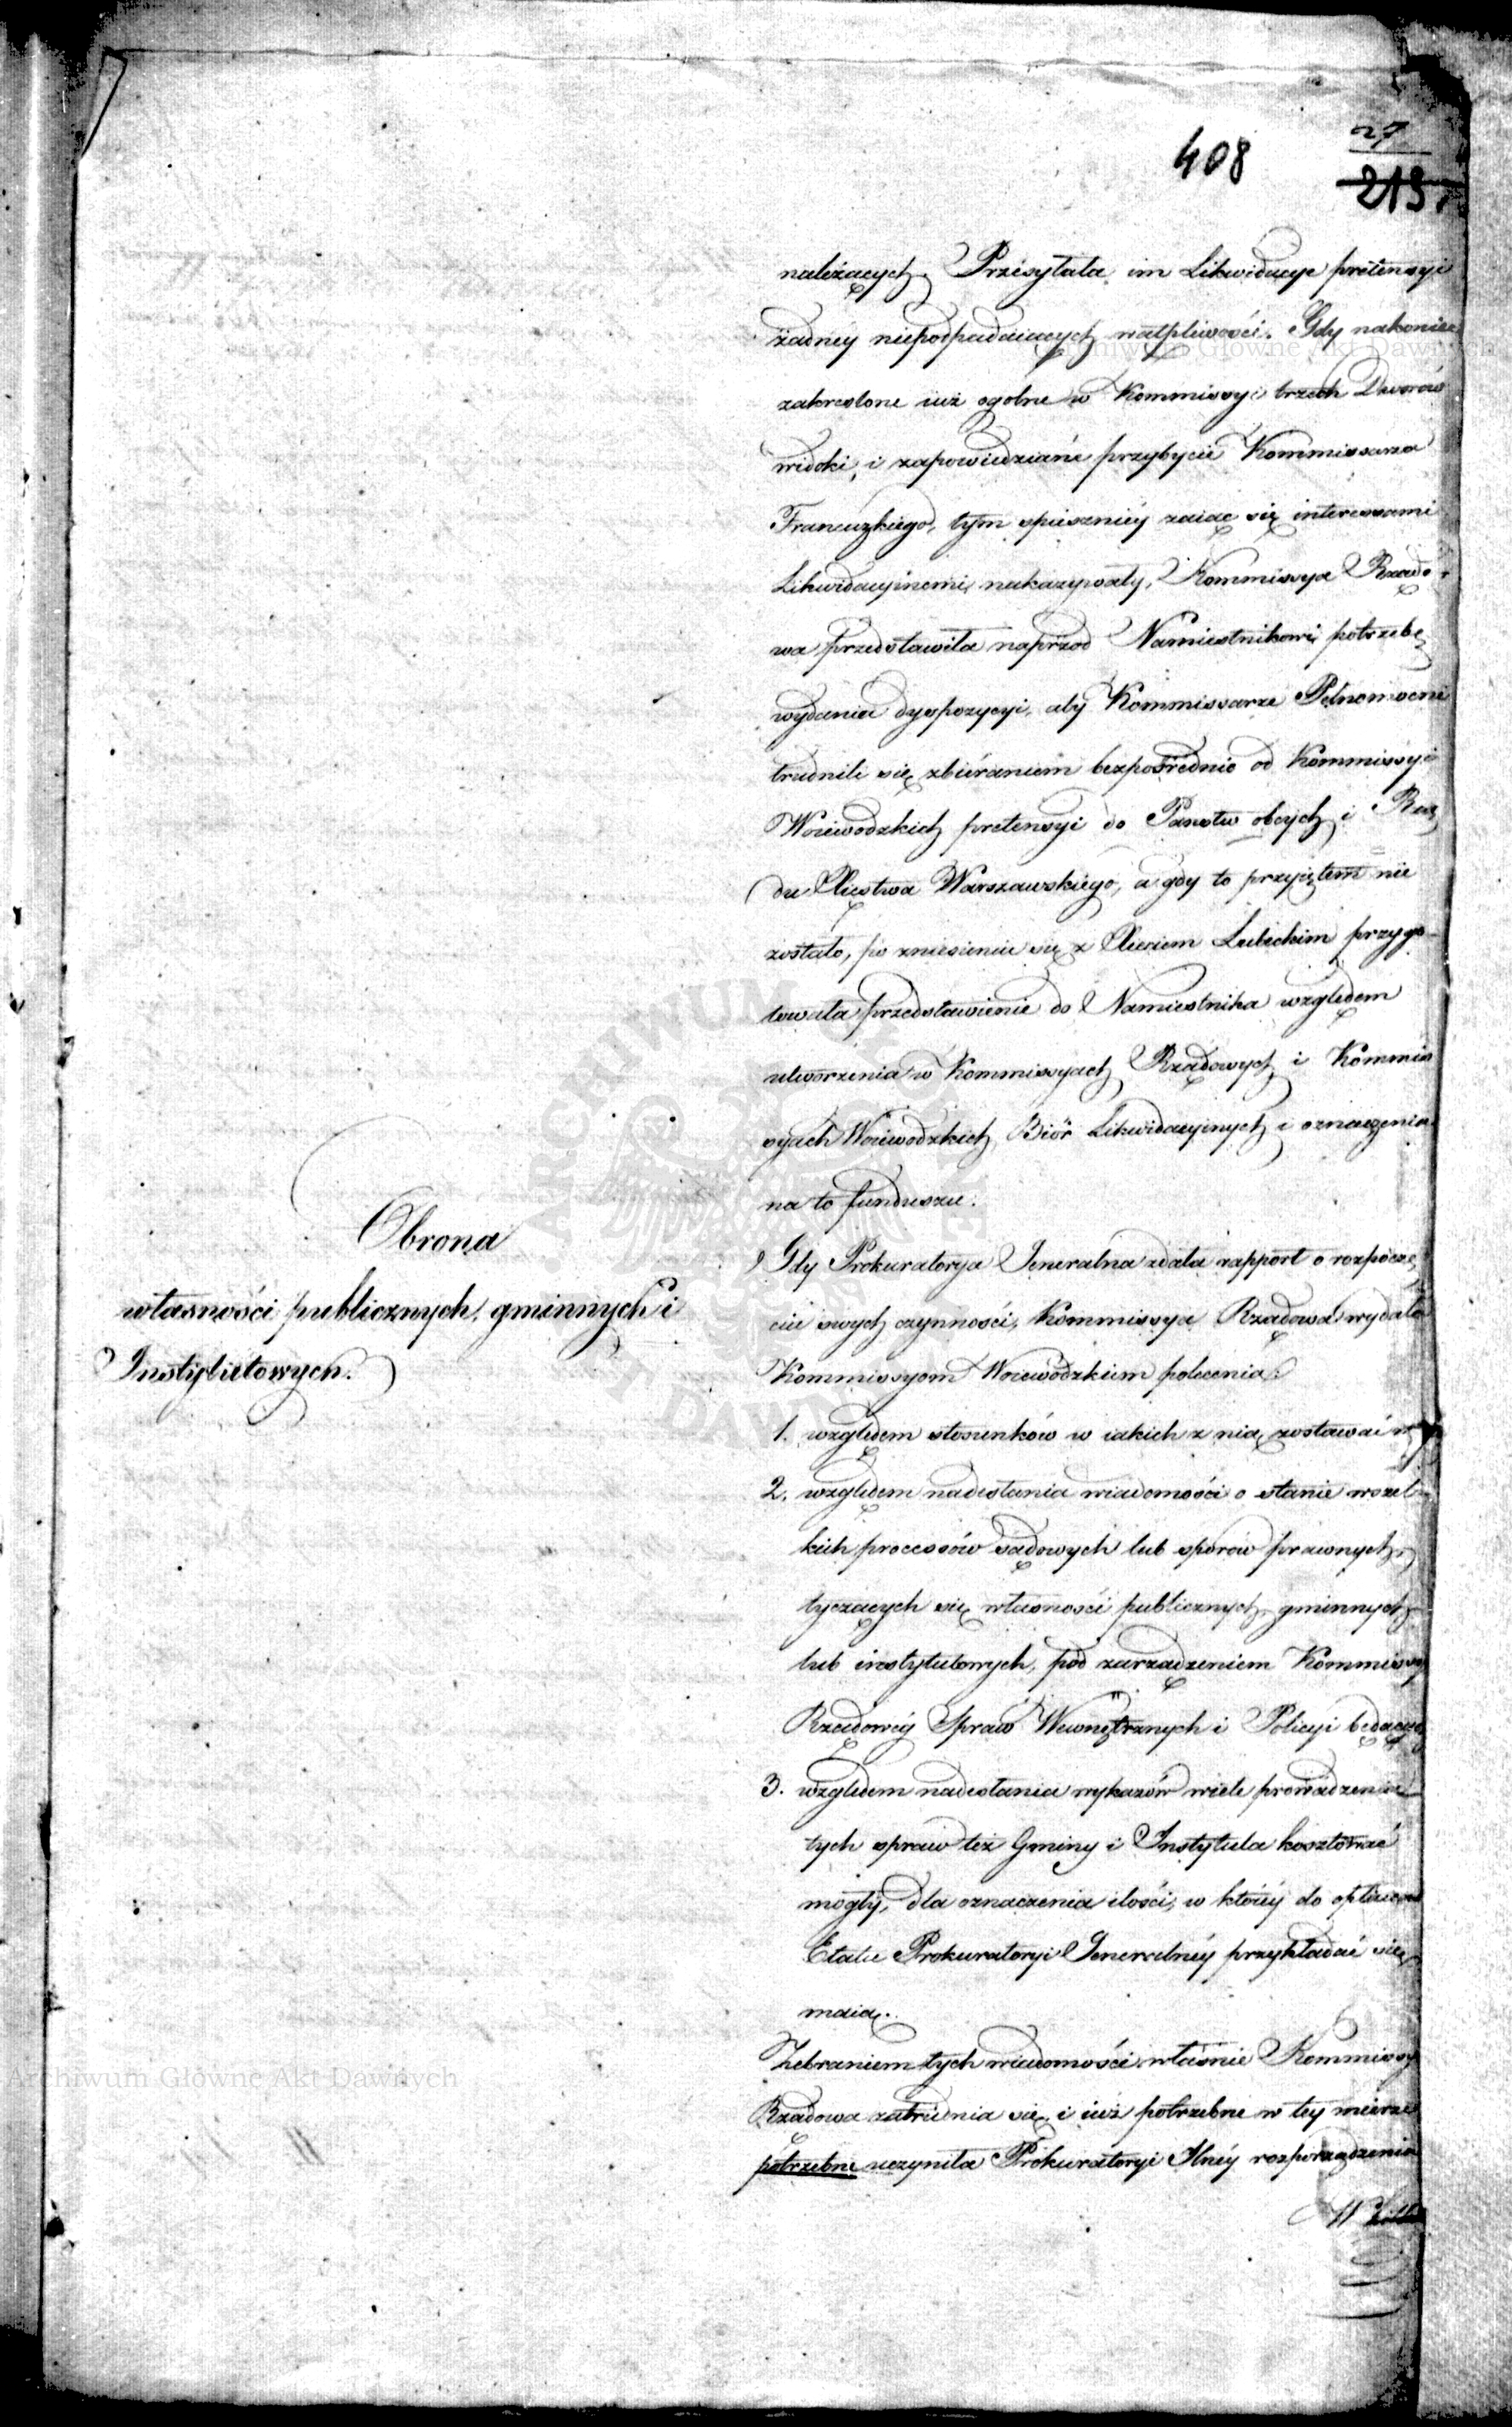 408
27
213.
należących. Przesyłała im Likwidacye pretensyi
żadnéy niepodpadaiących wątpliwości. Gdy nakoniec
zakreslone iuż ogolne w Kommissyi trzech Dworów
widoki, i zapowiedziane przybycie Kommissarza
Francuzkiego, tym spieszniéy zaiąc się interessami
Likwidacyinemi nakazywały, Kommissya Rządo-
wa przedstawiła naprzod Namiestnikowi potrzebę
wydania dyspozycyi, aby Kommissarze Pełnomocni
trudnili się zbiéraniem bezpośrednio od Kommissyi
Woiewodzkich pretensyi do Państw obcych i Rzą
du Xięstwa Warszawskiego, a gdy to przyiętem nie
zostało, po zniesieniu się z Xięciem Lubeckim przygo-
towała przedstawienie do Namiestnika względem
utworzenia w Kommissyach Rządowych i Kommis
syach Woiewodzkich Biór Likwidacyinych i oznaczenia
na to funduszu.
Obrona
własności publicznych, gminnych i
Instytutowych.
Gdy Prokuratorya Jeneralna zdała rapport o rozpoczę
ciu swych czynności, Kommissya Rządowa wydała
Kommissyom Woiewodzkim polecenia:
1. względem stosunków w iakich z nią zostawać
2. względem nadesłania wiadomości o stanie wszel-
kich processów sądowych lub sporów prawnych,
tyczących się własności publicznych, gminnych
lub instytutowych, pod zarządzeniem Kommissy
Rządowéy Spraw Wewnętrznych i Policyi będących
3. względem nadesłania wykazów wiele prowadzenie
tych spraw też Gminy i Instytuta kosztować
mogły, dla oznaczenia ilości, w któréy do opłacenia
Etatu Prokuratoryi Jeneralnéy przykładać się
maią.
Zebraniem tych wiadomości właśnie Kommissy
Rządowa zatrudnia się, i iuż potrzebne w tey mierze
potrzebne uczyniła Prokuratoryi Jlnéy rozporządzenia
Archiwum Główne Akt Dawnych
Archiwum Główne Akt Dawnych